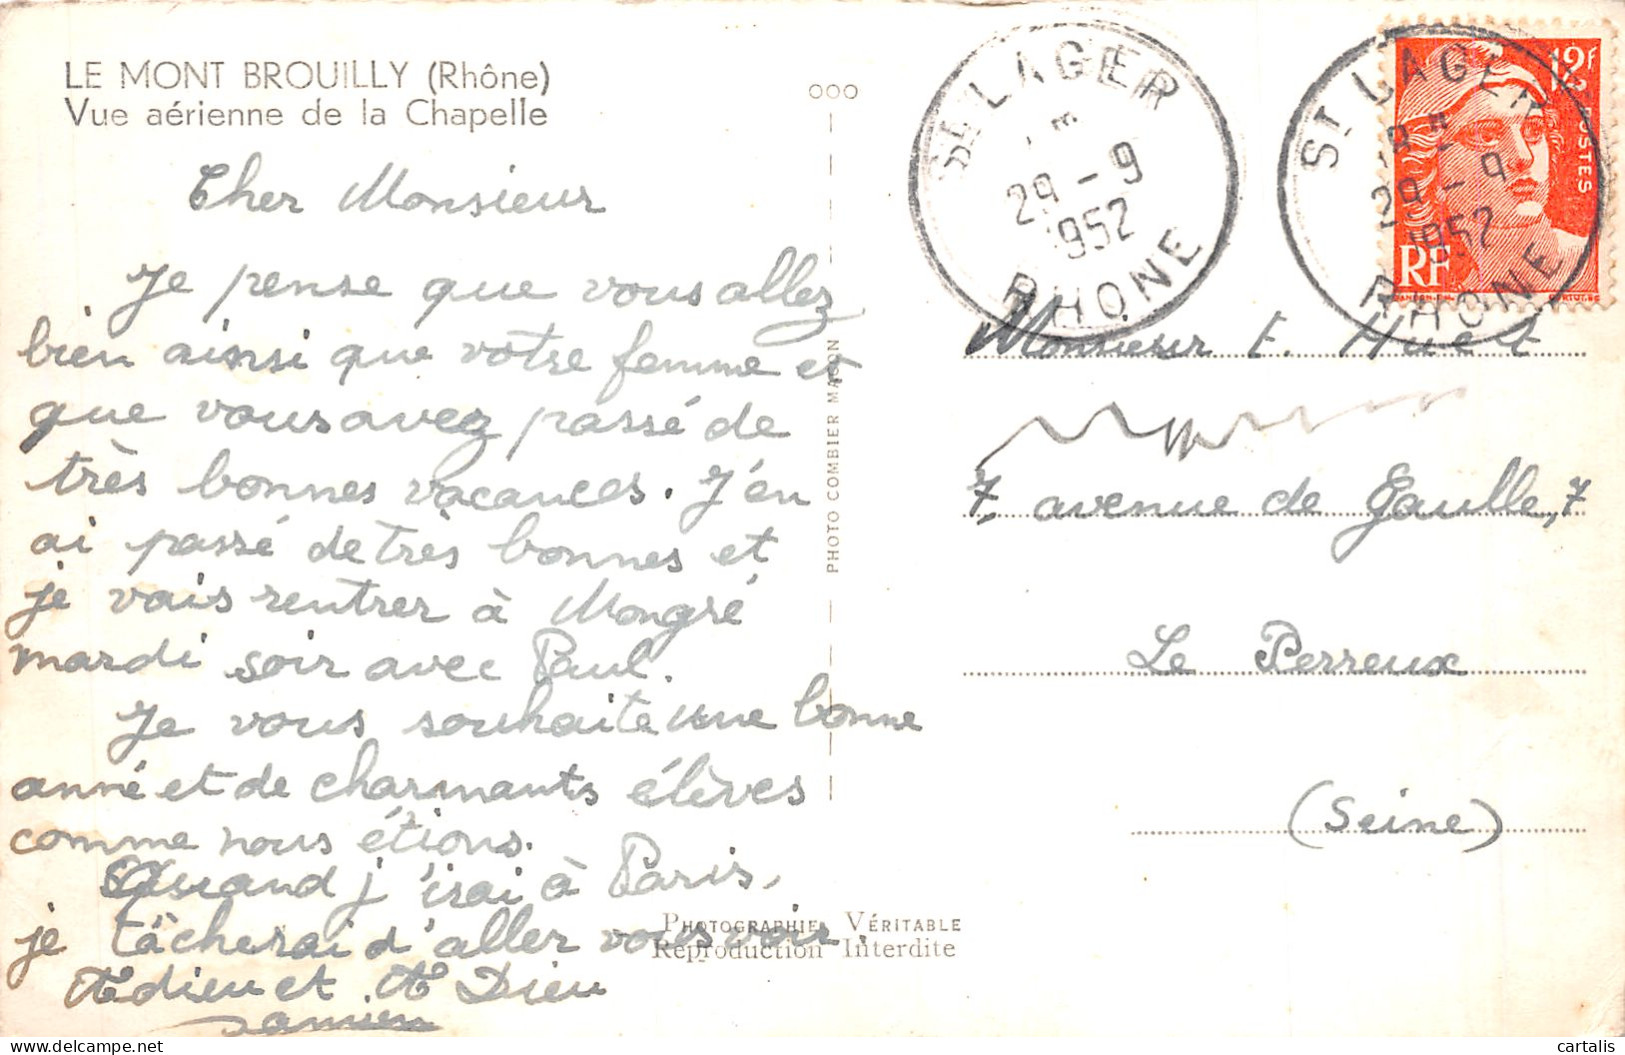 LE MONT BROUILLY (Rhône)
Vue aérienne de la Chapelle
Cher Monsieur
Je pense que vous allez
bien ainsi que votre femme et
que vous avez passé de
très bonnes vacances. J'en
ai passé de très bonnes et
je vais rentrer à Mongré
mardi soir avec Paul.
Je vous souhaite une bonne
anné et de charmants élèves
comme nous étions.
Quand j'irai à Paris,
je tâcherai d'aller vous voir.
Adieu et A Dieu
Damien
OOO
PHOTO COMBIER MACON
PHOTOGRAPHIE VÉRITABLE
Reproduction Interdite
ST LAGER
29-9
1952
RHONE
ST LAGER
18 H
29-9
1952
RHONE
12F
POSTES
RF
Monsieur E. Huet
7, avenue de Gaulle, 7
Le Perreux
(Seine)
cartalis
delcampe.net